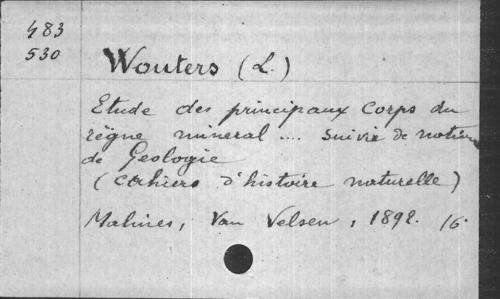 483
530
Wouters (L.)
Etude des principaux corps du
règne mineral .... suivie de notions
de Geologie
(Cahiers d'histoire naturelle)
Malines, Van Velsen, 1892. 16°